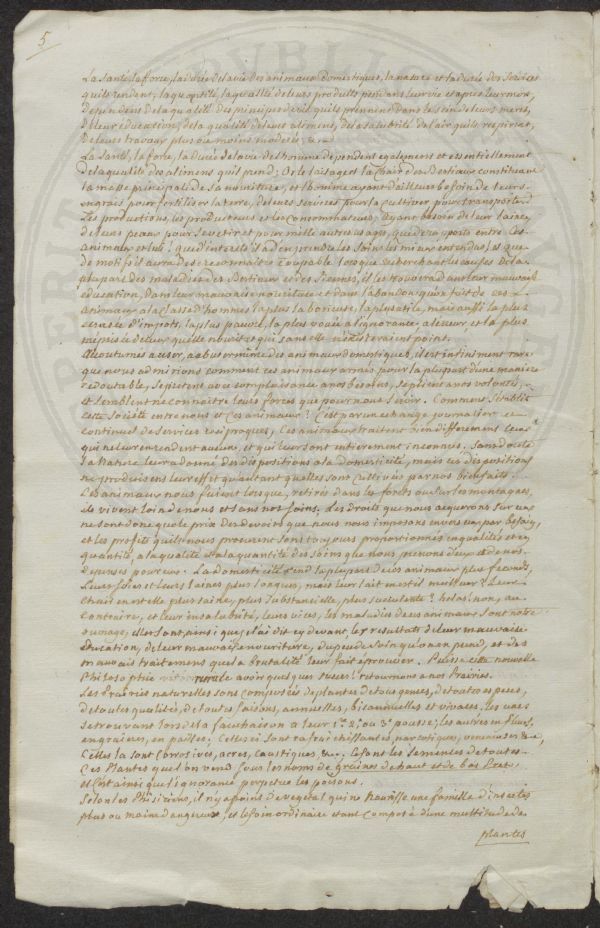 5
La Santé, la force, la durée de la vie des animaux domestiques, la nature et la durée des services
qu'ils rendent, la quantité, la qualité de leurs produits pendant leur vie et apres leur mort,
dependent de la qualité des principes de vie qu'ils prennent dans le sein de leurs meres,
de leur éducation, de la qualité de leurs alimens, de la salubrité de l'air qu'ils respirent,
de leurs travaux plus ou moins moderés, &c.
La Santé, la force, la durée de la vie de l'homme dependent egalement et essentiellement
de la qualité des alimens qu'il prend; Or le laitage et la chair des Bestiaux constituant
la masse principale de sa nourriture, et l'homme ayant d'ailleurs besoin de leurs
engrais pour fertiliser la terre, de leurs services pour la cultiver pour transporter
Les productions, les producteurs et les consommateurs; ayant besoin de leur laine,
de leurs peaux pour se vetir et pour mille autres usages, que de rapports entre ces
animaux et lui! que d'interets il a d'en prendre les soins les mieux entendus! et que
de motifs il aura de se reconnaitre coupable lorsque recherchant les causes de la
plupart des maladies des Bestiaux et des siennes, il les trouvera dans leur mauvaise
éducation, dans leur mauvaise nourriture et dans l'abandon qu'on fait de ces
animaux a la classe d'hommes la plus laborieuse, la plus utile, mais aussi la plus
ecrasée d'impots, la plus pauvre, la plus vouée à l'ignorance, et la plus
meprisée de ceux qu'elle nourrit et qui sans elle n'existeraient point.
Accoutumés a user, a abuser même des animaux domestiques, il est infiniment rare
que nous admirions comment ces animaux armés pour la plupart d'une maniere
redoutable, se pretent avec complaisance a nos besoins, se plient a nos volontés,
et semblent ne connaitre leurs forces que pour nous servir. Comment s'etablit
cette Société entre nous et ces animaux? C'est par un echange journalier et
continuel de services reciproques; Ces animaux traitent en indifferens ceux
qui ne leur en rendent aucun, et qui leur sont entierement inconnus. Sans doute
la Nature leur a donné des dispositions a la domesticité, mais ces dispositions
ne produisent leur effet qu'autant qu'elles sont cultivées par nos bienfaits.
Ces animaux nous fuient lorsque, retirés dans les forêts ou sur les montagnes,
ils vivent loin de nous et sans nos soins. Les droits que nous acquerons sur eux
ne sont donc que le prix des devoirs que nous nous imposons envers eux par besoin,
et les profits qu'ils nous procurent sont toujours proportionnés en qualité et en
quantité, a la qualité et a la quantité des soins que nous prenons d'eux et de nos
depenses pour eux. La domesticité rend la plupart de ces animaux plus feconds,
Leurs soies et leurs laines plus longues, mais leur lait en est il meilleur? Leur
chair en est elle plus saine, plus substancielle, plus succulente? helas! non, au
Contraire, et leur insalubrité, leurs vices, les maladies de ces animaux sont notre
ouvrage; elles sont, ainsi que j'ai dit cy devant, les resultats de leur mauvaise
Education, de leur mauvaise nourriture, du peu de soin qu'on en prend, et des
mauvais traitemens que la brutalité leur fait eprouver. Puisse cette nouvelle
Philosophie rurale avoir quelques succès! retournons a nos Prairies.
Les Prairies naturelles sont composées de plantes de tous genres, de toutes especes,
de toutes qualités, de toutes saisons, annuelles, bisannuelles et vivaces. les unes
se trouvant lors de la fauchaison a leur 1re 2e ou 3e pousse, les autres en fleurs,
en graines, en pailles. Celles ci sont rafraichissantes, narcotiques, venimeuses &c.,
Celles la sont corrosives, acres, caustiques, &c. Ce sont les semences de toutes
Ces Plantes que l'on vend sous les noms de graines de haut et de bas Prets,
et C'est ainsi que l'ignorance perpetue les poisons.
Selon les Phisiciens, il n'y a point de vegetal qui ne nourrisse une famille d'insectes
plus ou moins dangereux, et le foin ordinaire etant composé d'une multitude de
plantes